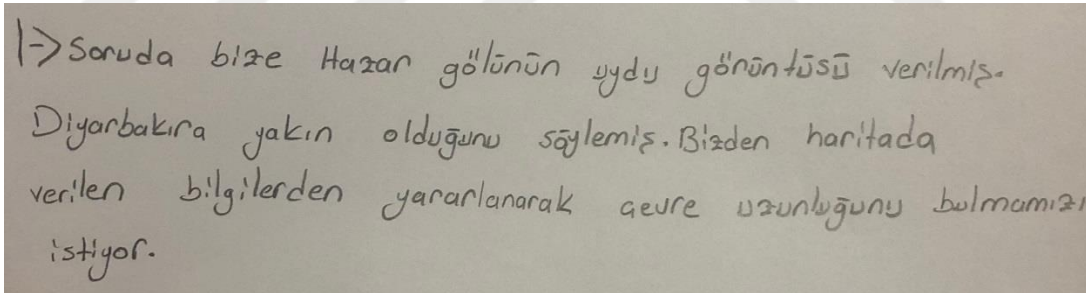 1-> Soruda bize Hazar gölünün uydu görüntüsü verilmiş.
Diyarbakıra yakın olduğunu söylemiş. Bizden haritada
verilen bilgilerden yararlanarak çevre uzunluğunu bulmamızı
istiyor.